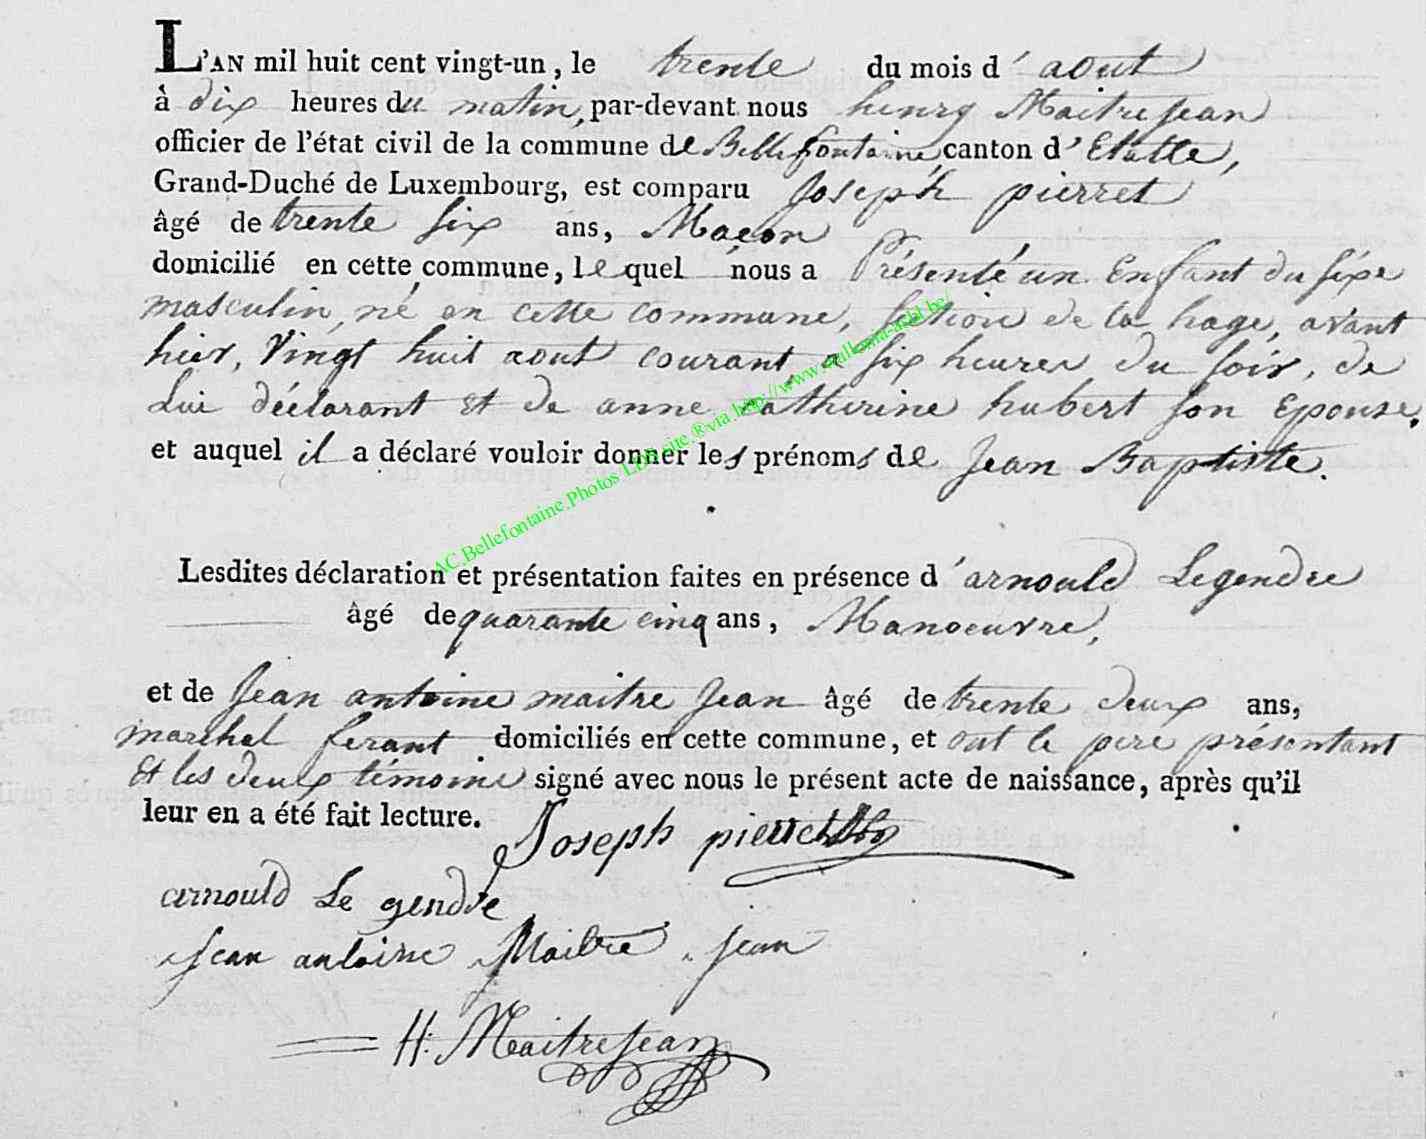 L'AN mil huit cent vingt-un, le trente du mois d'aout
à dix heures du matin, par-devant nous henry Maitrejean
officier de l'état civil de la commune de Bellefontaine, canton d'Etalle,
Grand-Duché de Luxembourg, est comparu Joseph pierret
âgé de trente six ans, Maçon
domicilié en cette commune, lequel nous a Présenté un Enfant du sixe
masculin, né en cette commune, section de la hage, avant
hier, Vingt huit aout courant, a six heures du soir, de
Lui déclarant et de anne catherine hubert son Epouse,
et auquel il a déclaré vouloir donner les prénoms de Jean Baptiste.
AC.Bellefontaine.Photos LDB site
Lesdites déclaration et présentation faites en présence d'arnould Legendre
âgé de quarante cinq ans, Manoeuvre,
et de Jean antoine maitre Jean âgé de trente deux ans,
marchal ferant domiciliés en cette commune, et ont le pere présentant
Et les deux témoins signé avec nous le présent acte de naissance, après qu'il
leur en a été fait lecture.
Joseph pierret
arnould Le gendre
Jean antoine Maitre jean
H: Maitrejean